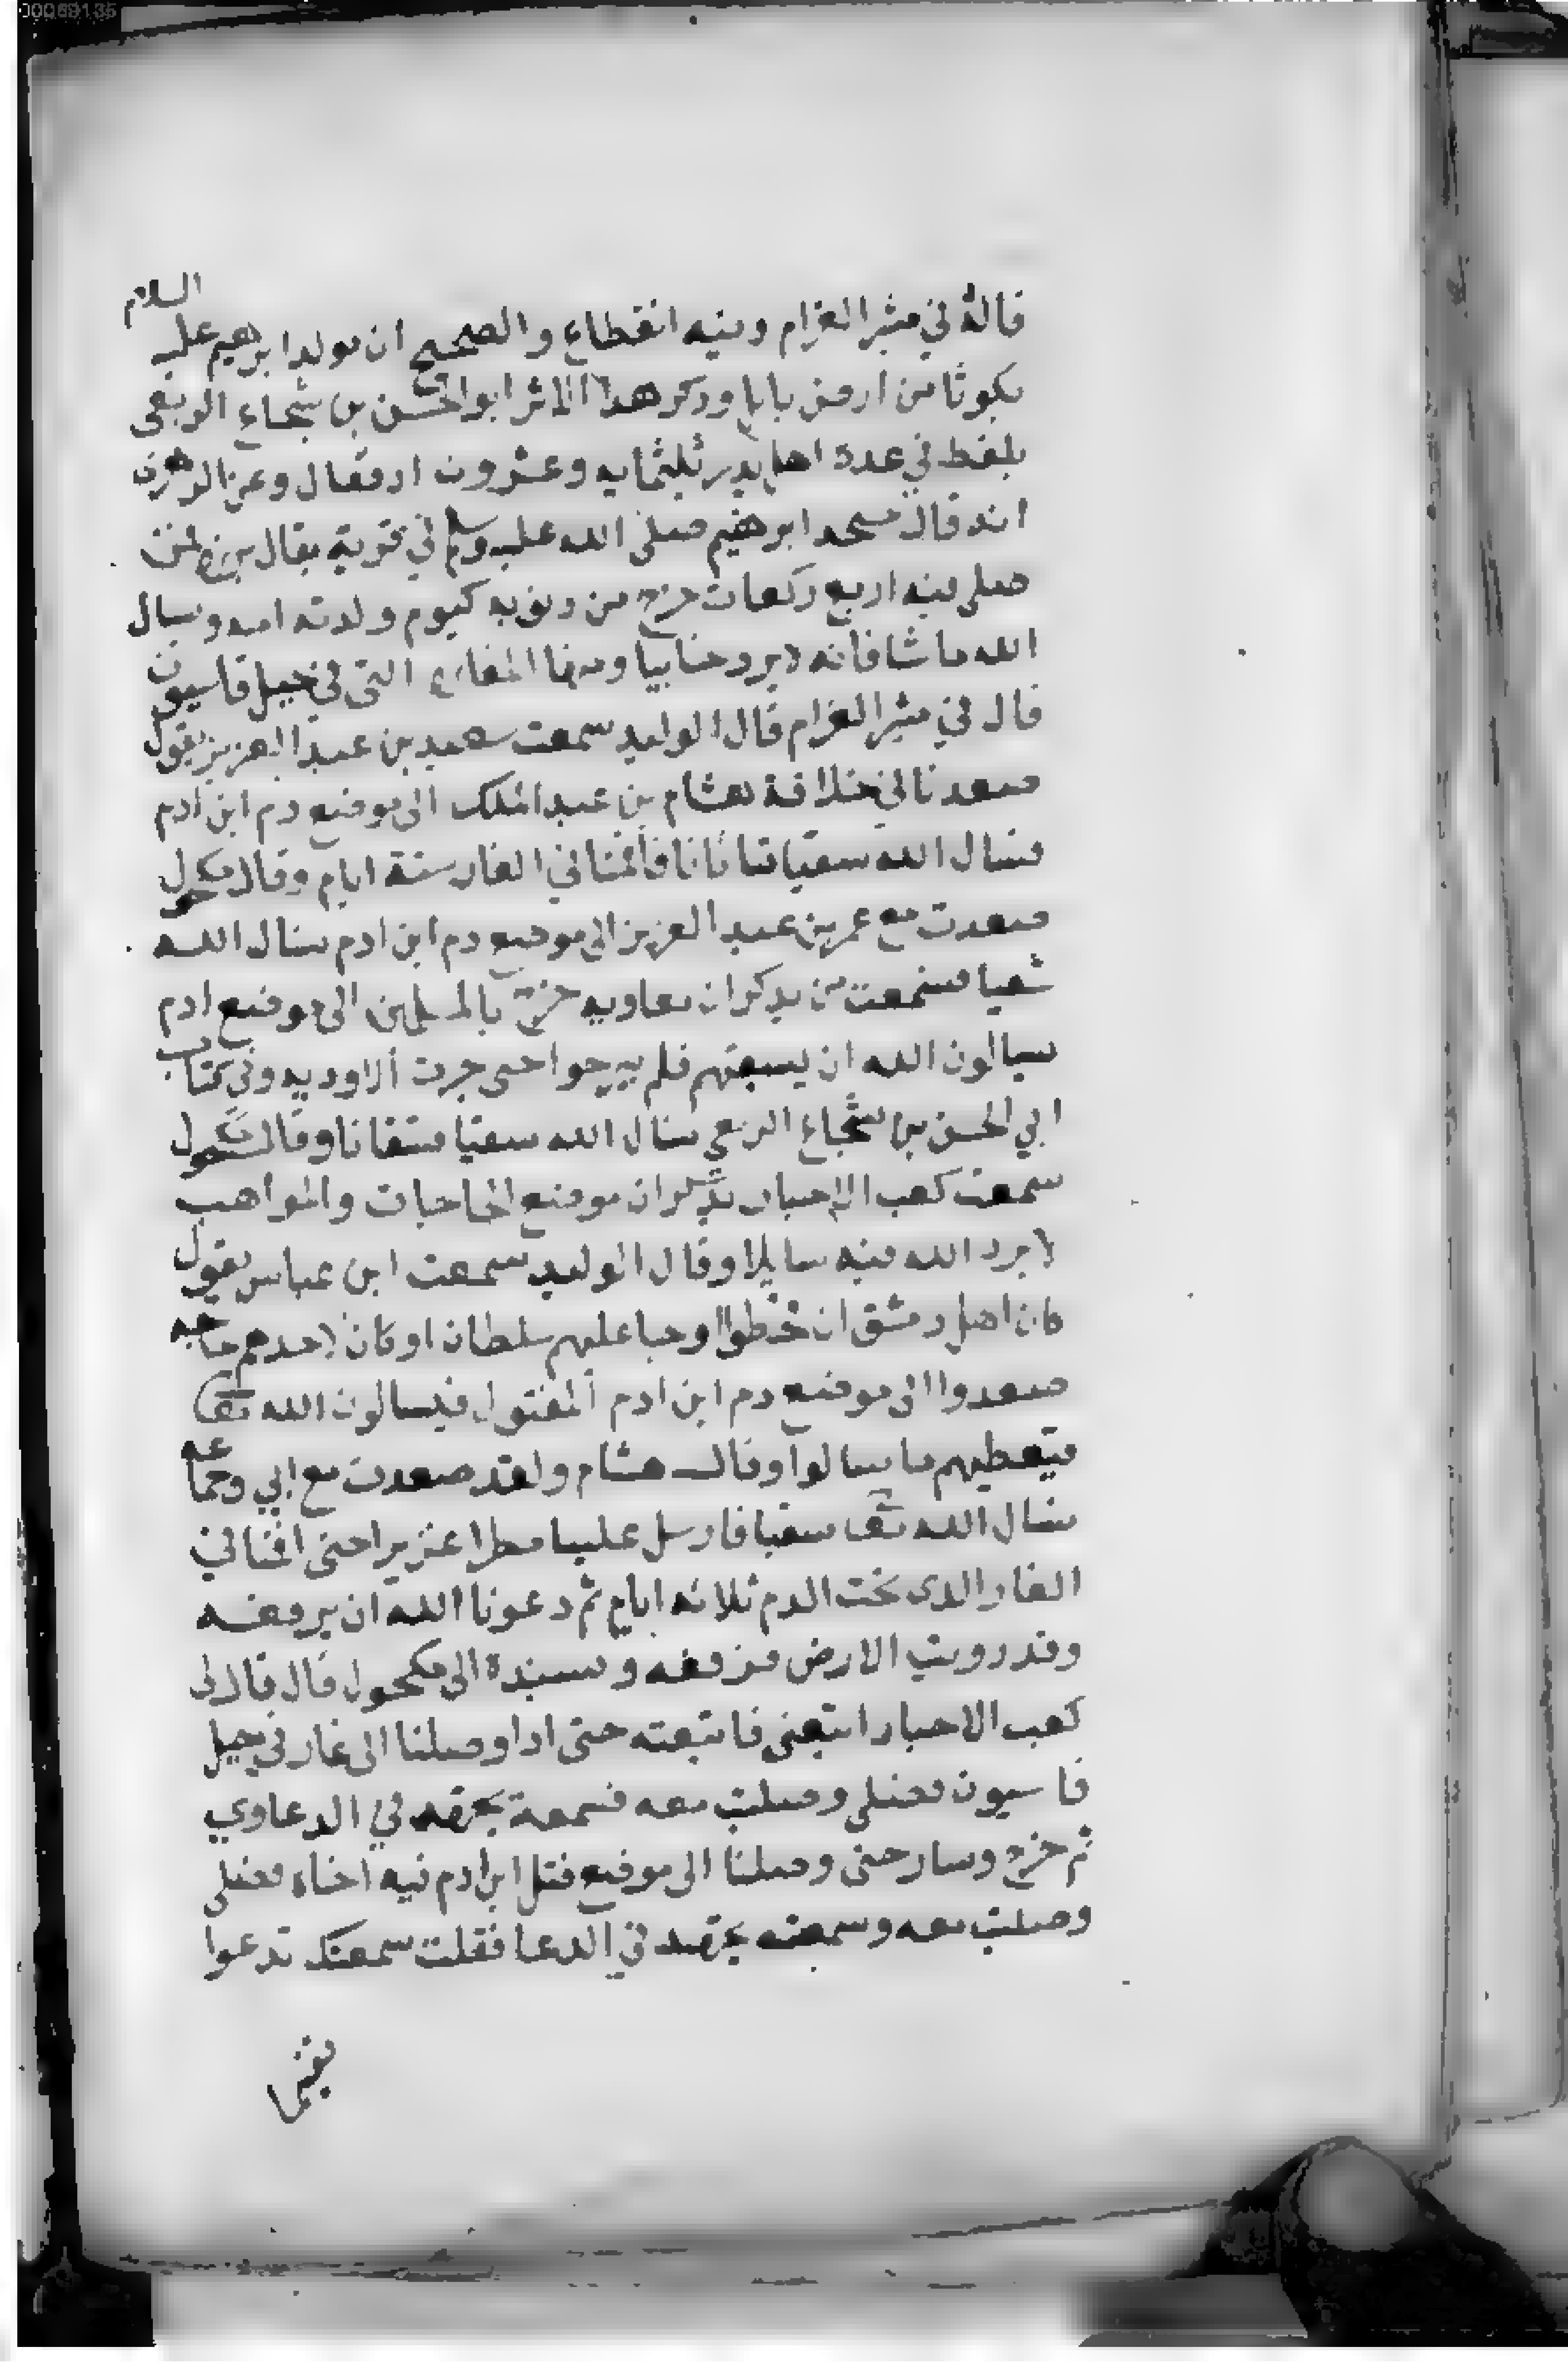 00069135
قاله في مثير الغرام وفيه انقطاع والصحيح ان مولد ابرهيم عليه السلام
بكوثا من ارض بابل وذكر هدا الاثر ابو الحسن بن شجاع الربعى
بلفظ في عدة اهل بدر ثلثمايه وعشرون اد فقال وعن الزهرى
انه قال مسجد ابرهيم صلى الله عليه وسلم في قرية يقال برزه فمن
صلى فيه اربع ركعات خرج من دنوبه كيوم ولدته امه وسال
الله ما شا فانه لا يرد خايبا ومنها المغاره التى في جبل قاسيون
قال في مثير الغرام قال الوليد سمعت سعيد بن عبد العزيز يقول
صعدنا في خلافة هشام بن عبد الملك الى موضع دم ابن ادم
نسال الله سقيا فاتانا فاقمنا في الغار ستة ايام وقال مكحول
صعدت مع عمر بن عبد العزيز الى موضع دم ابن ادم نسال الله
سقيا فسمعت من يدكر ان معاويه خرج بالمسلمين الى موضع ادم
يسالون الله ان يسقيهم فلم يبرحوا حتى جرت الاوديه وفي كتاب
ابي الحسن بن شجاع الربعي نسال الله سقيا فسقانا وقال مكحول
سمعت كعب الاحبار يدكر ان موضع الحاجات والمواهب
لا يرد الله فيه سايلا وقال الوليد سمعت ابن عباس يقول
كان اهل دمشق ان قحطوا او جبا عليهم سلطان او كان لاحدهم حاجه
صعدوا الى موضع دم ابن ادم المقتول فيسالون الله تعالى
فيعطيهم ما سالوا وقال هشام ولقد صعدت مع ابي وجماعه
نسال الله تعالى سقيا فارسل علينا مطرا غزيرا حتى اقمنا في
الغار الدى تحت الدم ثلاثه ايام ثم دعونا الله ان يرفعه
وقد رويت الارض فرفعه وبسنده الى مكحول قال قال لى
كعب الاحبار اتبعنى فاتبعته حتى ادا وصلنا الى غار في جبل
قاسيون فصلى وصليت معه فسمعة يجتهد في الدعا وي
ثم خرج وسار حتى وصلنا الى موضع قتل ابن ادم فيه اخاه فصلى
وصليت معه وسمعته يجتهد في الدعا فقلت سمعتك تدعوا